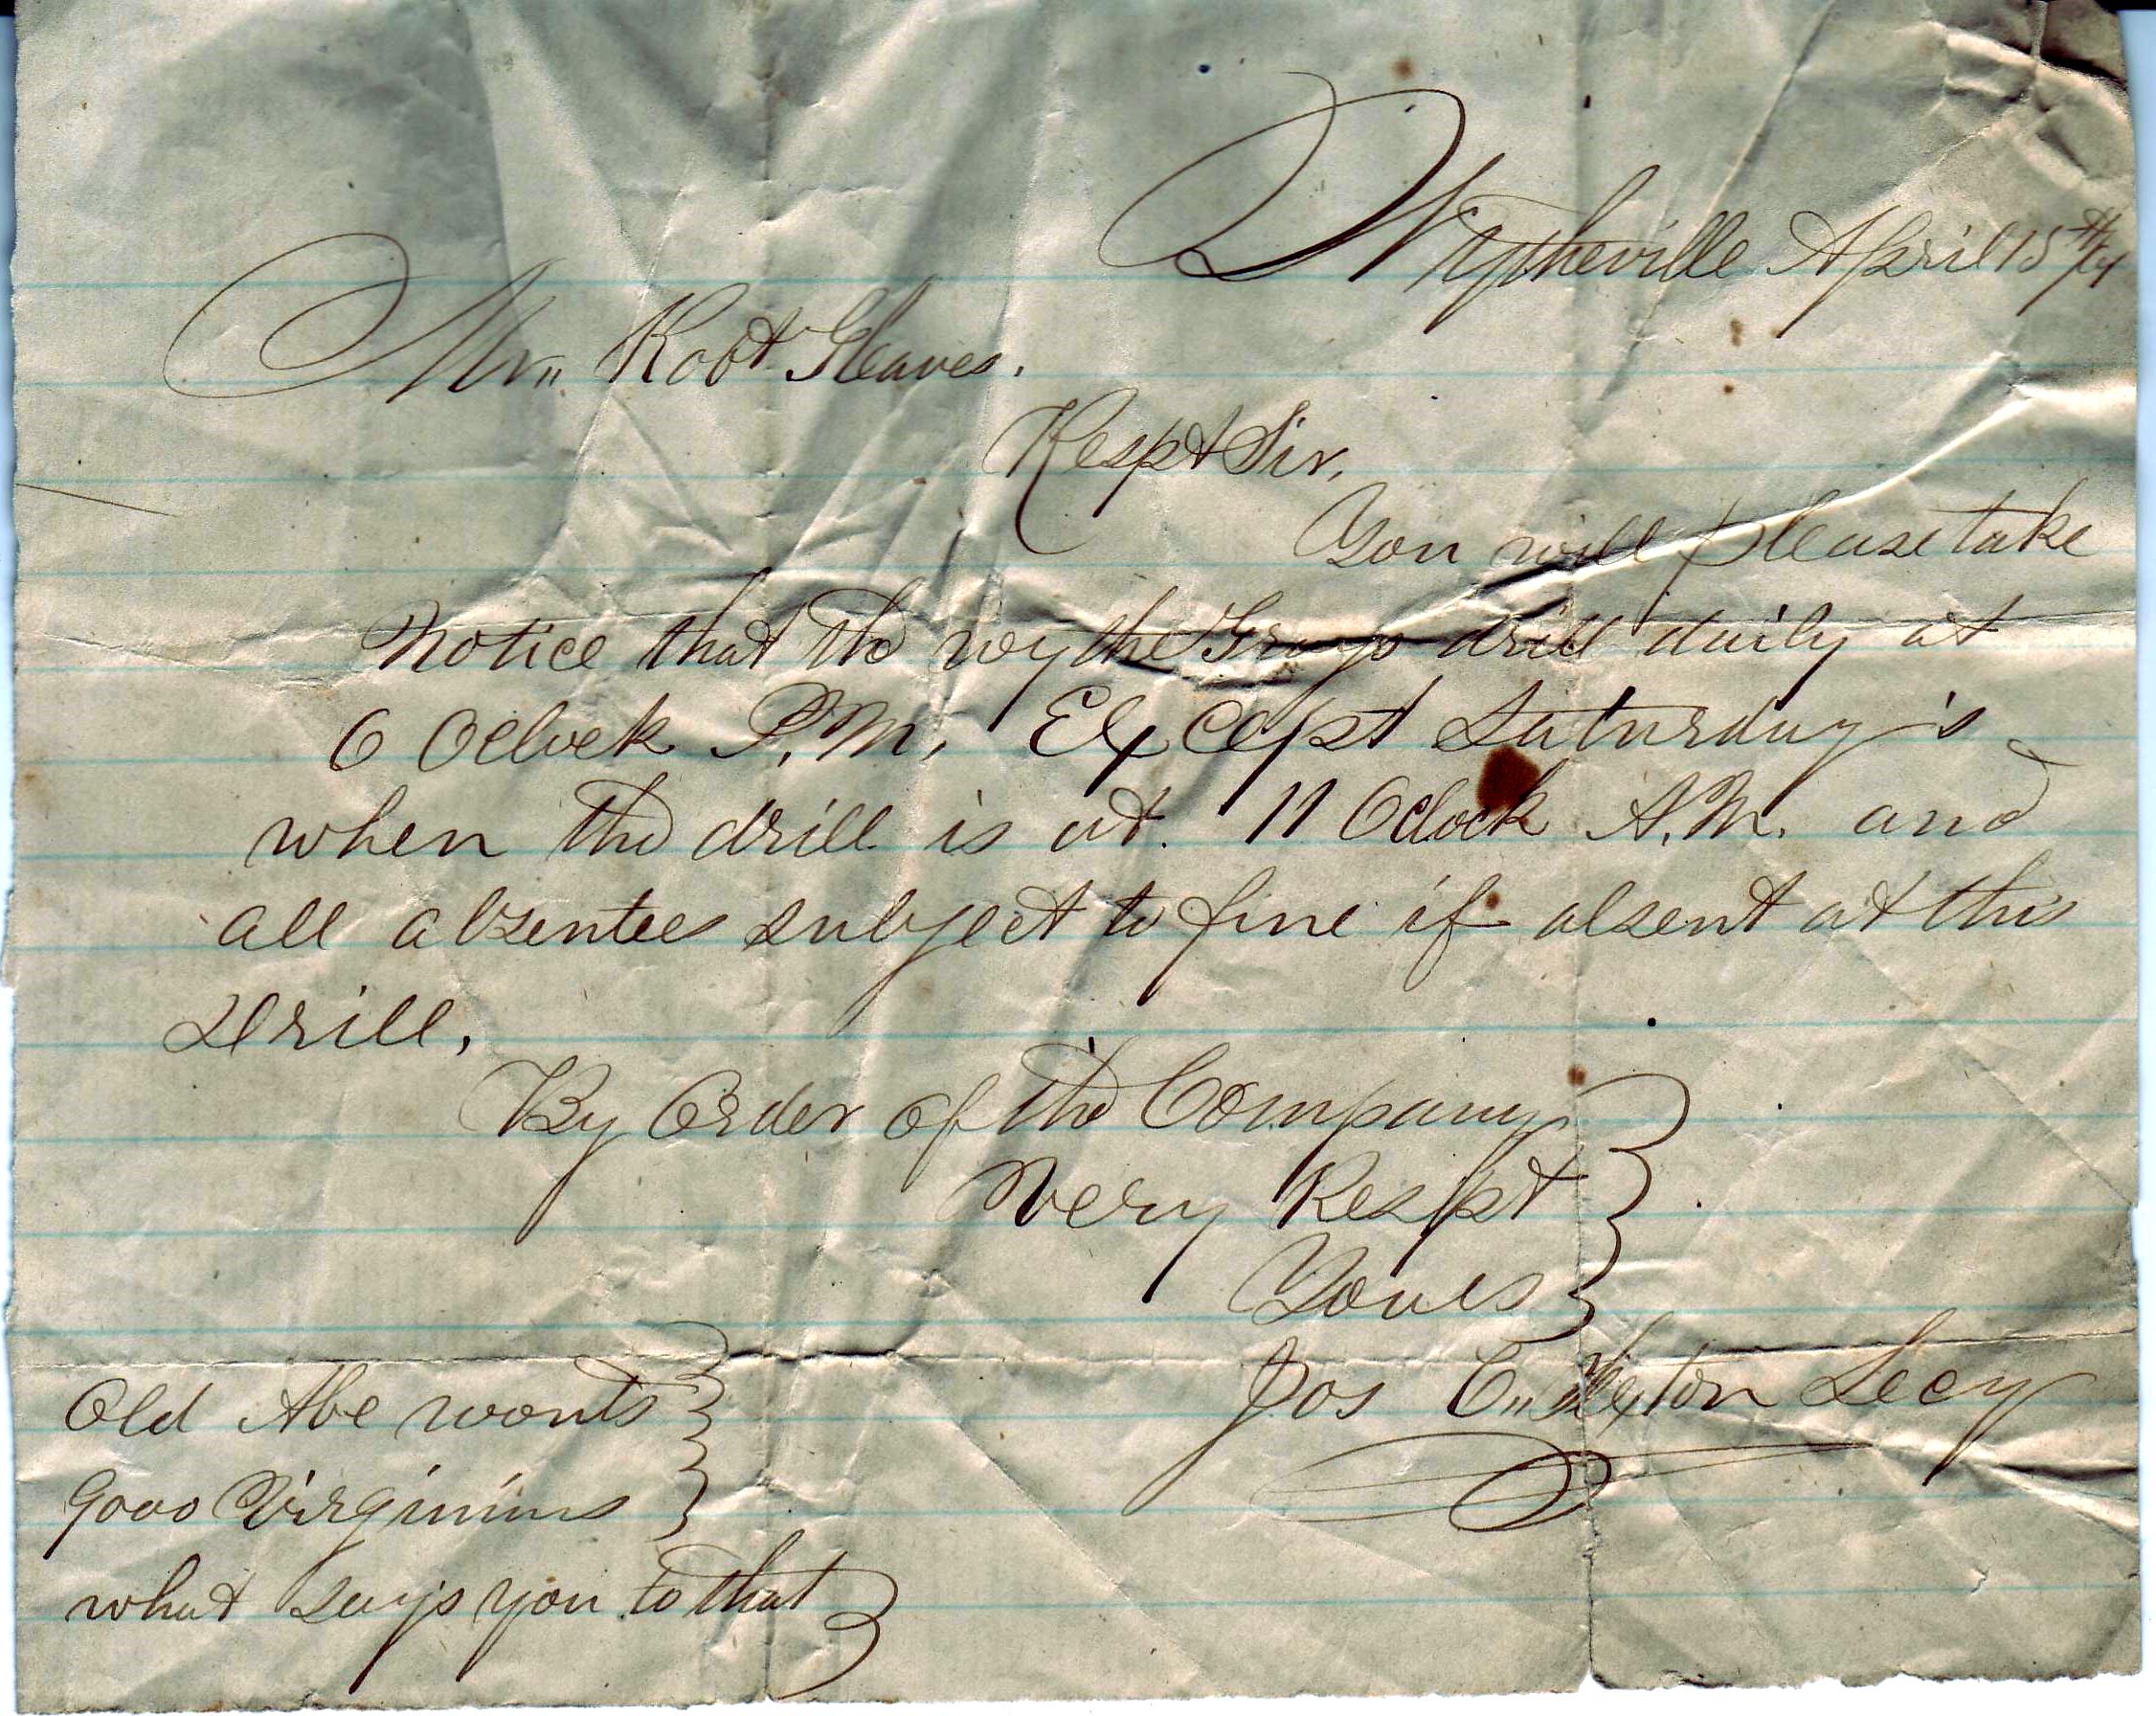 Wytheville April 15th
Mr,, Robt Gleaves.
Respt Sir,
You will please take
Notice that the wythe Grays drill daily at
6 Oclock P.M, Except Saturday's
when the drill is at. 11 Oclock A.M. and
all absentees subject to fine if absent at this
Drill,
By Order of the Company
Very Respt
Yours
Jos C,, Secy
Old Abe wonts
good Virginians
what says you to that